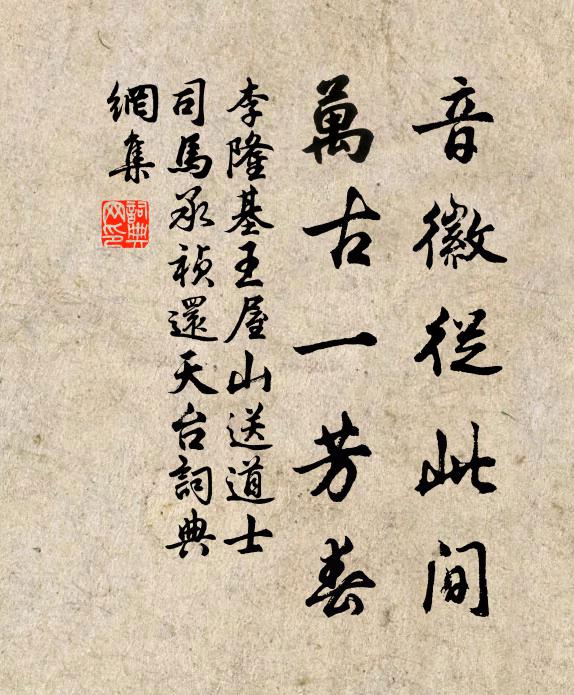 音徽從此间
萬古一芳春
李隆基王屋山送道士
司馬承禎還天台詞典
網集
詞典網印